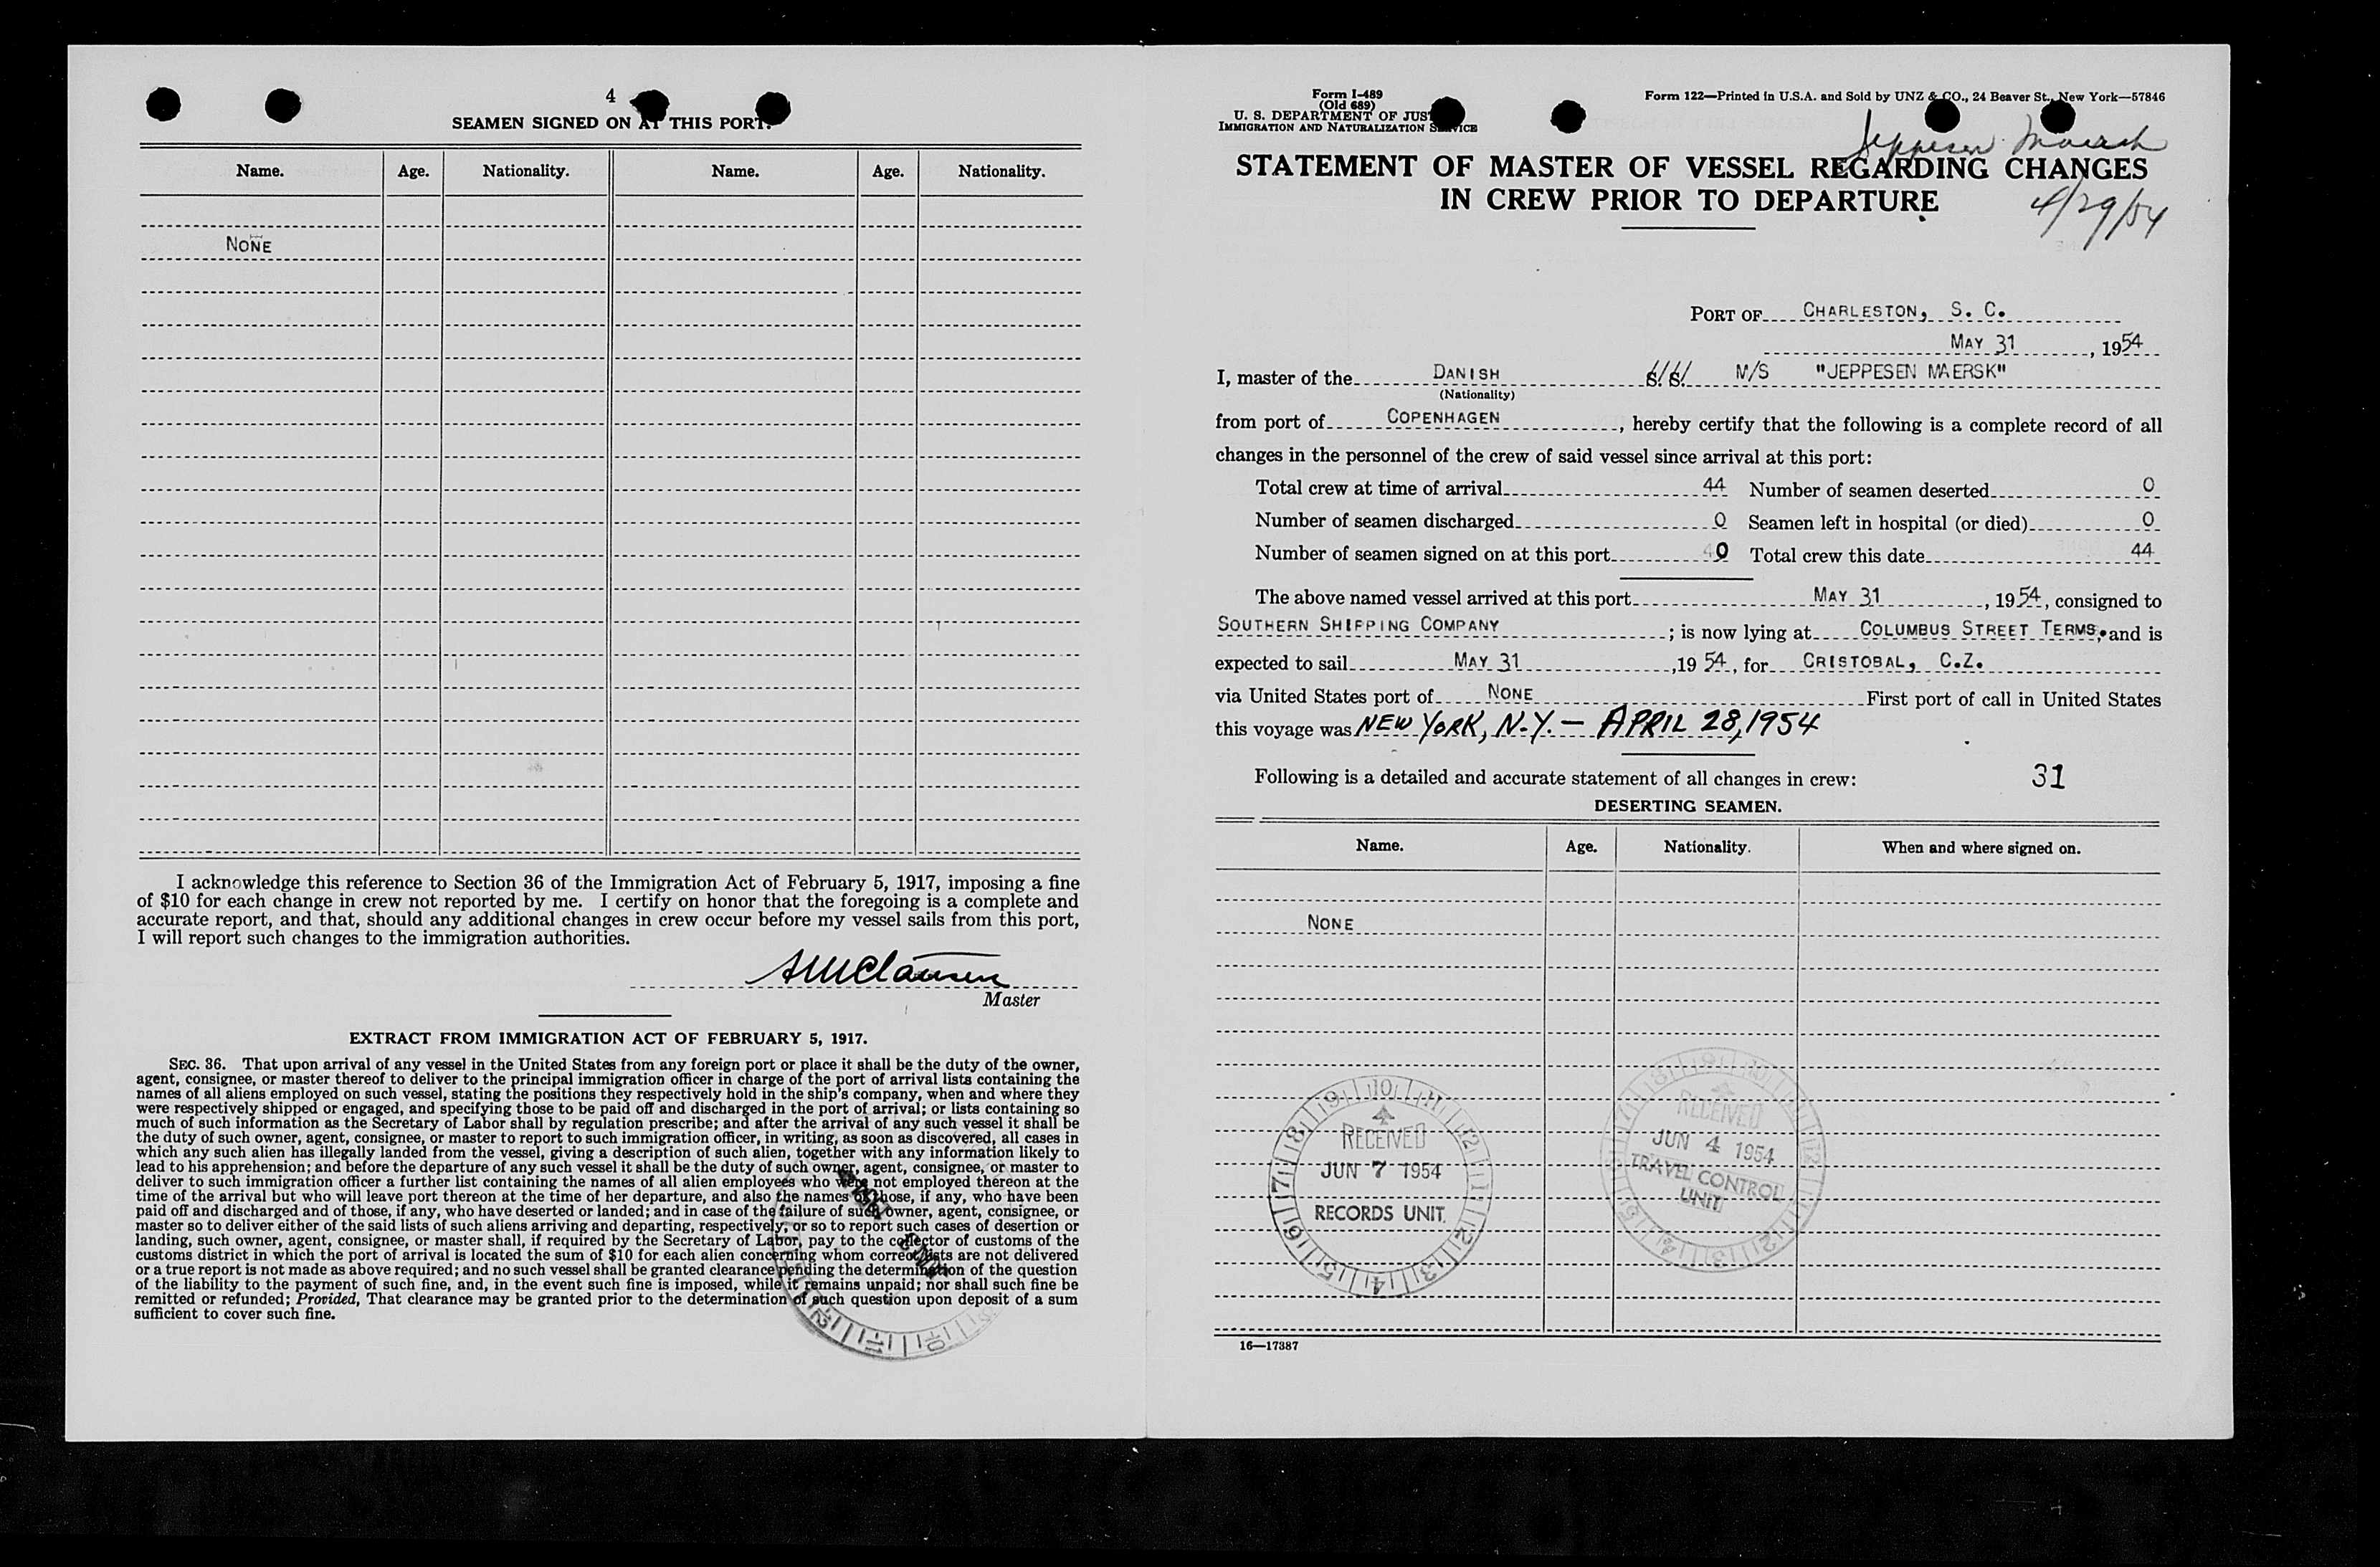 4
SEAMEN SIGNED ON AT THIS PORT.
Name. Age. Nationality. Name. Age. Nationality.
NONE
I acknowledge this reference to Section 36 of the Immigration Act of February 5, 1917, imposing a fine
of $10 for each change in crew not reported by me. I certify on honor that the foregoing is a complete and
accurate report, and that, should any additional changes in crew occur before my vessel sails from this port,
I will report such changes to the immigration authorities.
Master
EXTRACT FROM IMMIGRATION ACT OF FEBRUARY 5, 1917.
SEC. 36. That upon arrival of any vessel in the United States from any foreign port or place it shall be the duty of the owner,
agent, consignee, or master thereof to deliver to the principal immigration officer in charge of the port of arrival lists containing the
names of all aliens employed on such vessel, stating the positions they respectively hold in the ship's company, when and where they
were respectively shipped or engaged, and specifying those to be paid off and discharged in the port of arrival; or lists containing so
much of such information as the Secretary of Labor shall by regulation prescribe; and after the arrival of any such vessel it shall be
the duty of such owner, agent, consignee, or master to report to such immigration officer, in writing, as soon as discovered, all cases in
which any such alien has illegally landed from the vessel, giving a description of such alien, together with any information likely to
lead to his apprehension; and before the departure of any such vessel it shall be the duty of such owner, agent, consignee, or master to
deliver to such immigration officer a further list containing the names of all alien employees who were not employed thereon at the
time of the arrival but who will leave port thereon at the time of her departure, and also the names of those, if any, who have been
paid off and discharged and of those, if any, who have deserted or landed; and in case of the failure of such owner, agent, consignee, or
master so to deliver either of the said lists of such aliens arriving and departing, respectively, or so to report such cases of desertion or
landing, such owner, agent, consignee, or master shall, if required by the Secretary of Labor, pay to the collector of customs of the
customs district in which the port of arrival is located the sum of $10 for each alien concerning whom correct lists are not delivered
or a true report is not made as above required; and no such vessel shall be granted clearance pending the determination of the question
of the liability to the payment of such fine, and, in the event such fine is imposed, while it remains unpaid; nor shall such fine be
remitted or refunded; Provided, That clearance may be granted prior to the determination of such question upon deposit of a sum
sufficient to cover such fine.
Form I-489
(Old 689)
U. S. DEPARTMENT OF JUSTICE
IMMIGRATION AND NATURALIZATION SERVICE
Form 122—Printed in U.S.A. and Sold by UNZ & CO., 24 Beaver St., New York—57846
Jeppesen Maersk
STATEMENT OF MASTER OF VESSEL REGARDING CHANGES
IN CREW PRIOR TO DEPARTURE
4/29/54
PORT OF CHARLESTON, S. C.
MAY 31, 1954
I, master of the DANISH S/S/ M/S "JEPPESEN MAERSK"
(Nationality)
from port of COPENHAGEN, hereby certify that the following is a complete record of all
changes in the personnel of the crew of said vessel since arrival at this port:
Total crew at time of arrival 44 Number of seamen deserted 0
Number of seamen discharged 0 Seamen left in hospital (or died) 0
Number of seamen signed on at this port 0 Total crew this date 44
The above named vessel arrived at this port MAY 31, 1954, consigned to
SOUTHERN SHIPPING COMPANY; is now lying at COLUMBUS STREET TERMS., and is
expected to sail MAY 31, 1954, for CRISTOBAL, C.Z.
via United States port of NONE First port of call in United States
this voyage was NEW YORK, N.Y. — APRIL 28, 1954
Following is a detailed and accurate statement of all changes in crew: 31
DESERTING SEAMEN.
Name. Age. Nationality. When and where signed on.
NONE
RECEIVED
JUN 7 1954
RECORDS UNIT
RECEIVED
JUN 4 1954
TRAVEL CONTROL
UNIT
16—17387